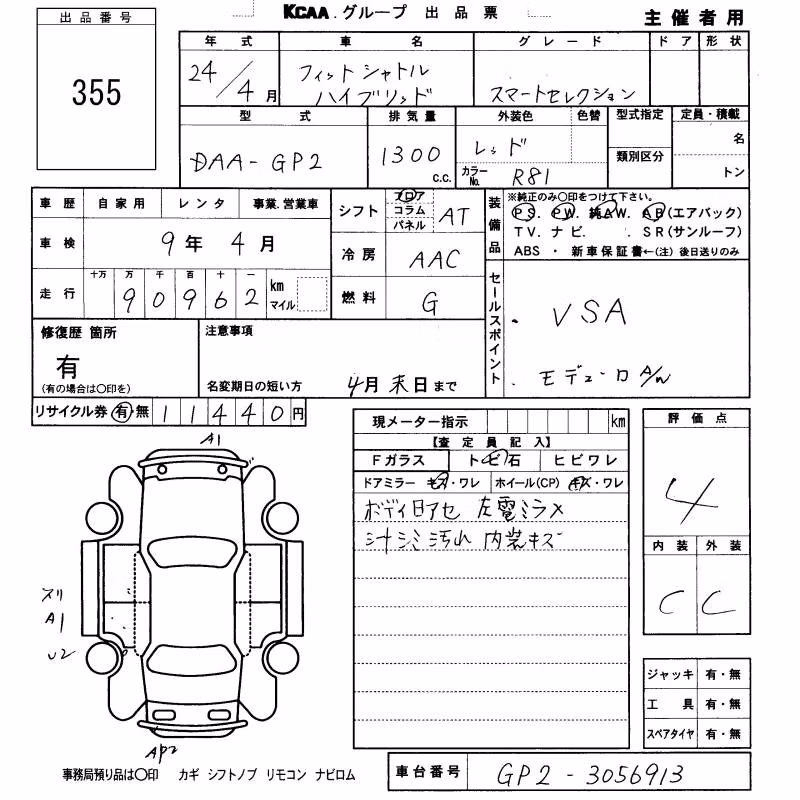 出品番号
KCAA.グループ 出品票
主催者用
355
年式 車名 グレード ドア 形状
24/4月 フィットシャトル ハイブリッド スマートセレクション
型式 排気量 外装色 色替 型式指定 定員・積載
DAA-GP2 1300 c.c. レッド 類別区分 名
カラーNo. R81 トン
車歴 自家用 レンタ 事業.営業車
車検 9年 4月
走行 十万 万 千 百 十 一 km マイル
90962
シフト フロア コラム パネル AT
冷房 AAC
燃料 G
装備品 ※純正のみ○印をつけて下さい。
PS. PW. 純AW. AB(エアバック)
TV. ナビ. SR(サンルーフ)
ABS ・ 新車保証書←(注)後日送りのみ
セールスポイント
・ VSA
・ モデューロA/W
修復歴 箇所 注意事項
有
(有の場合は○印を) 名変期日の短い方 4月末日まで
リサイクル券 有 無 11440円
現メーター指示 km
【査定員記入】
Fガラス トビ石 ヒビワレ
ドアミラー キズ・ワレ ホイール(CP) キズ・ワレ
ボディ日アセ 左電ミラ×
シートシミ汚れ 内装キズ
評価点
4
内装 外装
C C
ジャッキ 有・無
工具 有・無
スペアタイヤ 有・無
A1
スリ
A1
U2
AP2
事務局預り品は○印 カギ シフトノブ リモコン ナビロム
車台番号 GP2-3056913